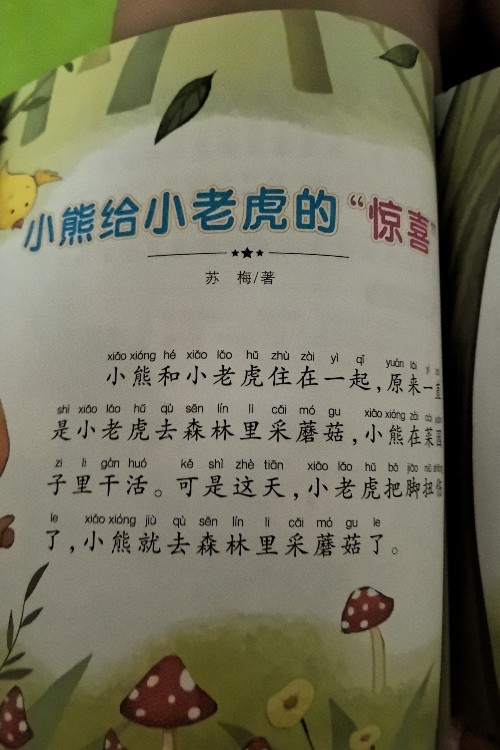 小熊给小老虎的“惊喜”
苏 梅/著
xiǎo xióng hé xiǎo lǎo hǔ zhù zài yì qǐ yuán lái yì
小熊和小老虎住在一起，原来一直
shì xiǎo lǎo hǔ qù sēn lín lǐ cǎi mó gu xiǎo xióng zài cài
是小老虎去森林里采蘑菇，小熊在菜园
zi lǐ gàn huó kě shì zhè tiān xiǎo lǎo hǔ bǎ jiǎo niǔ shāng
子里干活。可是这天，小老虎把脚扭伤
le xiǎo xióng jiù qù sēn lín lǐ cǎi mó gu le
了，小熊就去森林里采蘑菇了。